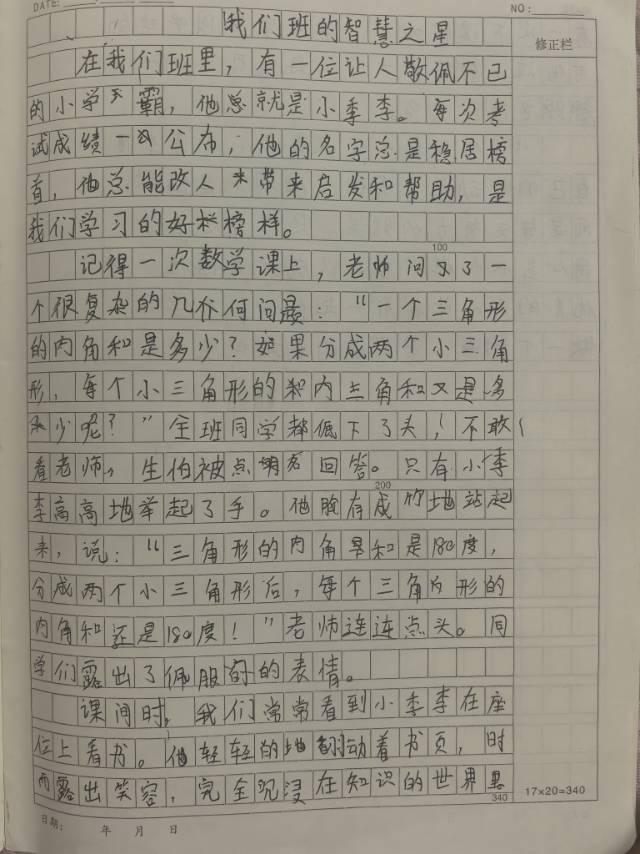 DATE:
NO:
我们班的智慧之星
修正栏
在我们班里，有一位让人敬佩不已
的小学霸，他总就是小季李。每次考
试成绩一公布，他的名字总是稳居榜
首，他总能改人带来启发和帮助，是
我们学习的好榜样。
100
记得一次数学课上，老师问了一
个很复杂的几何问题：“一个三角形
的内角和是多少？如果分成两个小三角
形，每个小三角形的内角和又是多
少呢？”全班同学都低下了头，不敢
看老师，生怕被点名回答。只有小季
200
李高高地举起了手。他胸有成竹地站起
来，说：“三角形的内角和是180度，
分成两个小三角形后，每个三角形的
内角和还是180度！”老师连连点头。同
学们露出了佩服的表情。
课间时，我们常常看到小季李在座
位上看书。他轻轻地翻动着书页，时
而露出笑容，完全沉浸在知识的世界里
340
17×20=340
日期： 年 月 日